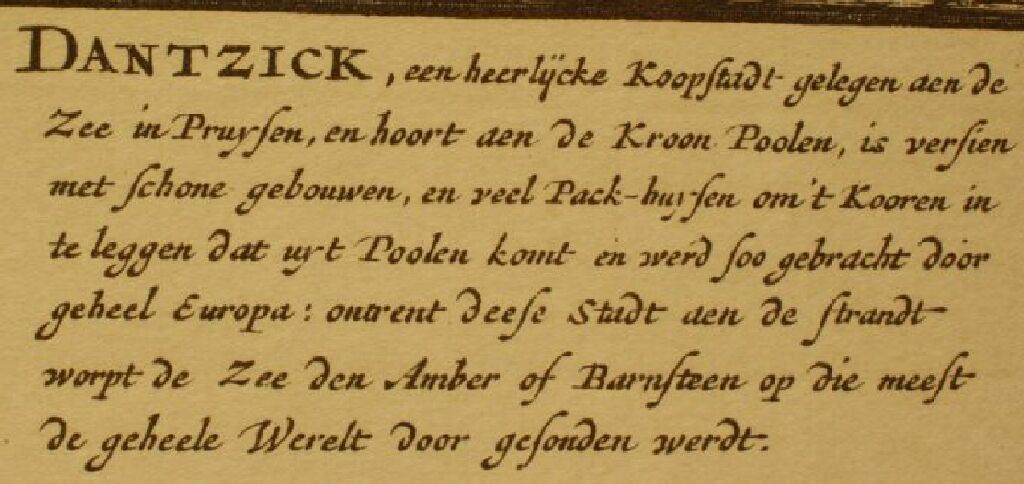 DANTZICK, een heerlijcke Koopstadt gelegen aen de
Zee in Pruysen, en hoort aen de Kroon Poolen, is versien
met schone gebouwen, en veel Pack-huysen om't Kooren in
te leggen dat uyt Poolen komt en werd soo gebracht door
geheel Europa: ontrent deese Stadt aen de strandt
worpt de Zee den Amber of Barnsteen op die meest
de geheele Werelt door gesonden werdt.